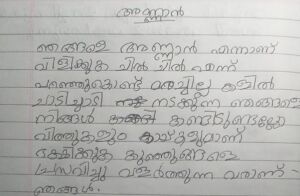 അണ്ണാൻ
ഞങ്ങളെ അണ്ണാൻ എന്നാണ്
വിളിക്കുക ചിൽ ചിൽ എന്ന്
പറഞ്ഞുകൊണ്ട് മരച്ചില്ല കളിൽ
ചാടിച്ചാടി നടക്കുന്ന ഞങ്ങളെ
നിങ്ങൾ കണ്ടിട്ടുണ്ടല്ലോ
വിത്തുകളും കായ്കളുമാണ്
ഭക്ഷിക്കുക കുഞ്ഞുങ്ങളെ
പ്രസവിച്ചു വളർത്തുന്ന വരാണ്
ഞങ്ങൾ.